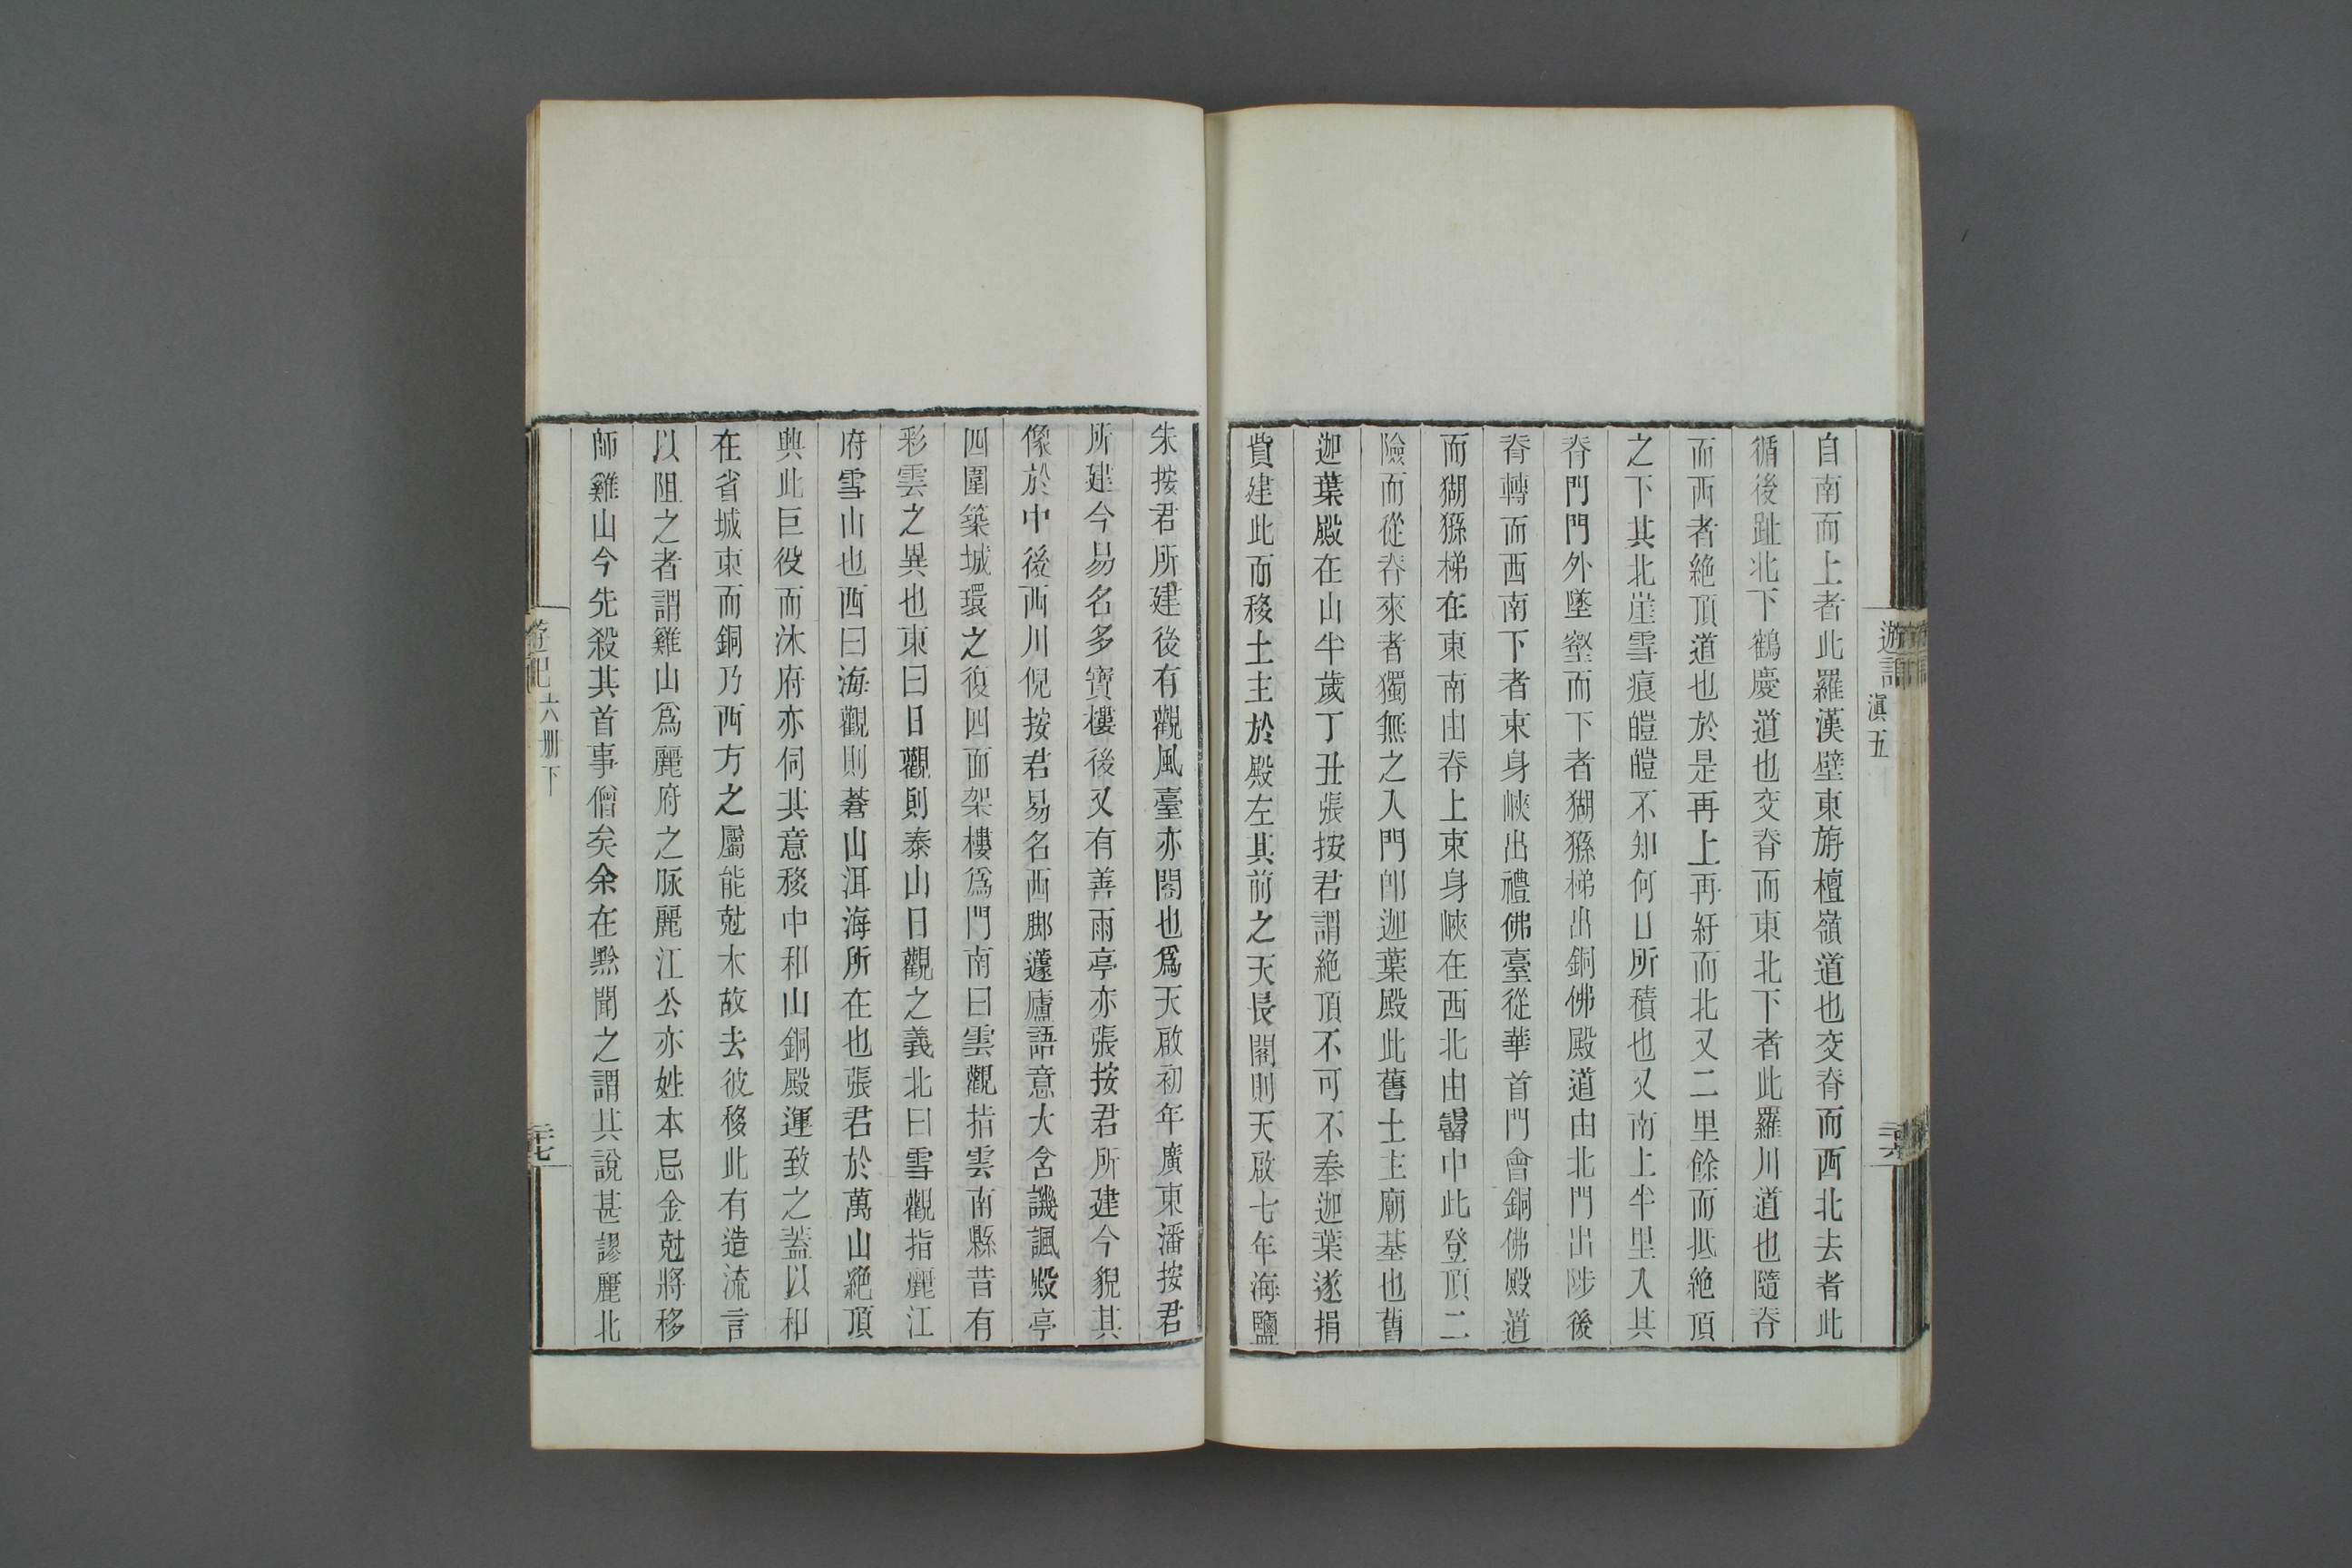 遊記
滇五
二十六
自南而上者此羅漢壁東旃檀嶺道也交脊而西北去者此
循後趾北下鶴慶道也交脊而東北下者此羅川道也隨脊
而西者絶頂道也於是再上再紆而北又二里餘而抵絶頂
之下其北崖雪痕皚皚不知何日所積也又南上半里入其
脊門門外墜壑而下者猢猻梯出銅佛殿道由北門出陟後
脊轉而西南下者束身峽出禮佛臺從華首門會銅佛殿道
而猢猻梯在東南由脊上束身峽在西北由罾中此登頂二
險而從脊來者獨無之入門即迦葉殿此舊土主廟基也舊
迦葉殿在山半歲丁丑張按君謂絶頂不可不奉迦葉遂捐
貲建此而移土主於殿左其前之天長閣則天啟七年海鹽
朱按君所建後有觀風臺亦閣也爲天啟初年廣東潘按君
所建今易名多寶樓後又有善雨亭亦張按君所建今貌其
像於中後西川倪按君易名西脚蘧廬語意大含譏諷殿亭
四圍築城環之復四面架樓爲門南曰雲觀指雲南縣昔有
彩雲之異也東曰日觀則泰山日觀之義北曰雪觀指麗江
府雪山也西曰海觀則蒼山洱海所在也張君於萬山絶頂
興此巨役而沐府亦伺其意移中和山銅殿運致之蓋以和
在省城東而銅乃西方之屬能尅木故去彼移此有造流言
以阻之者謂雞山爲麗府之脉麗江公亦姓本忌金尅將移
師雞山今先殺其首事僧矣余在黔聞之謂其說甚謬麗北
遊記
六册下
二十七